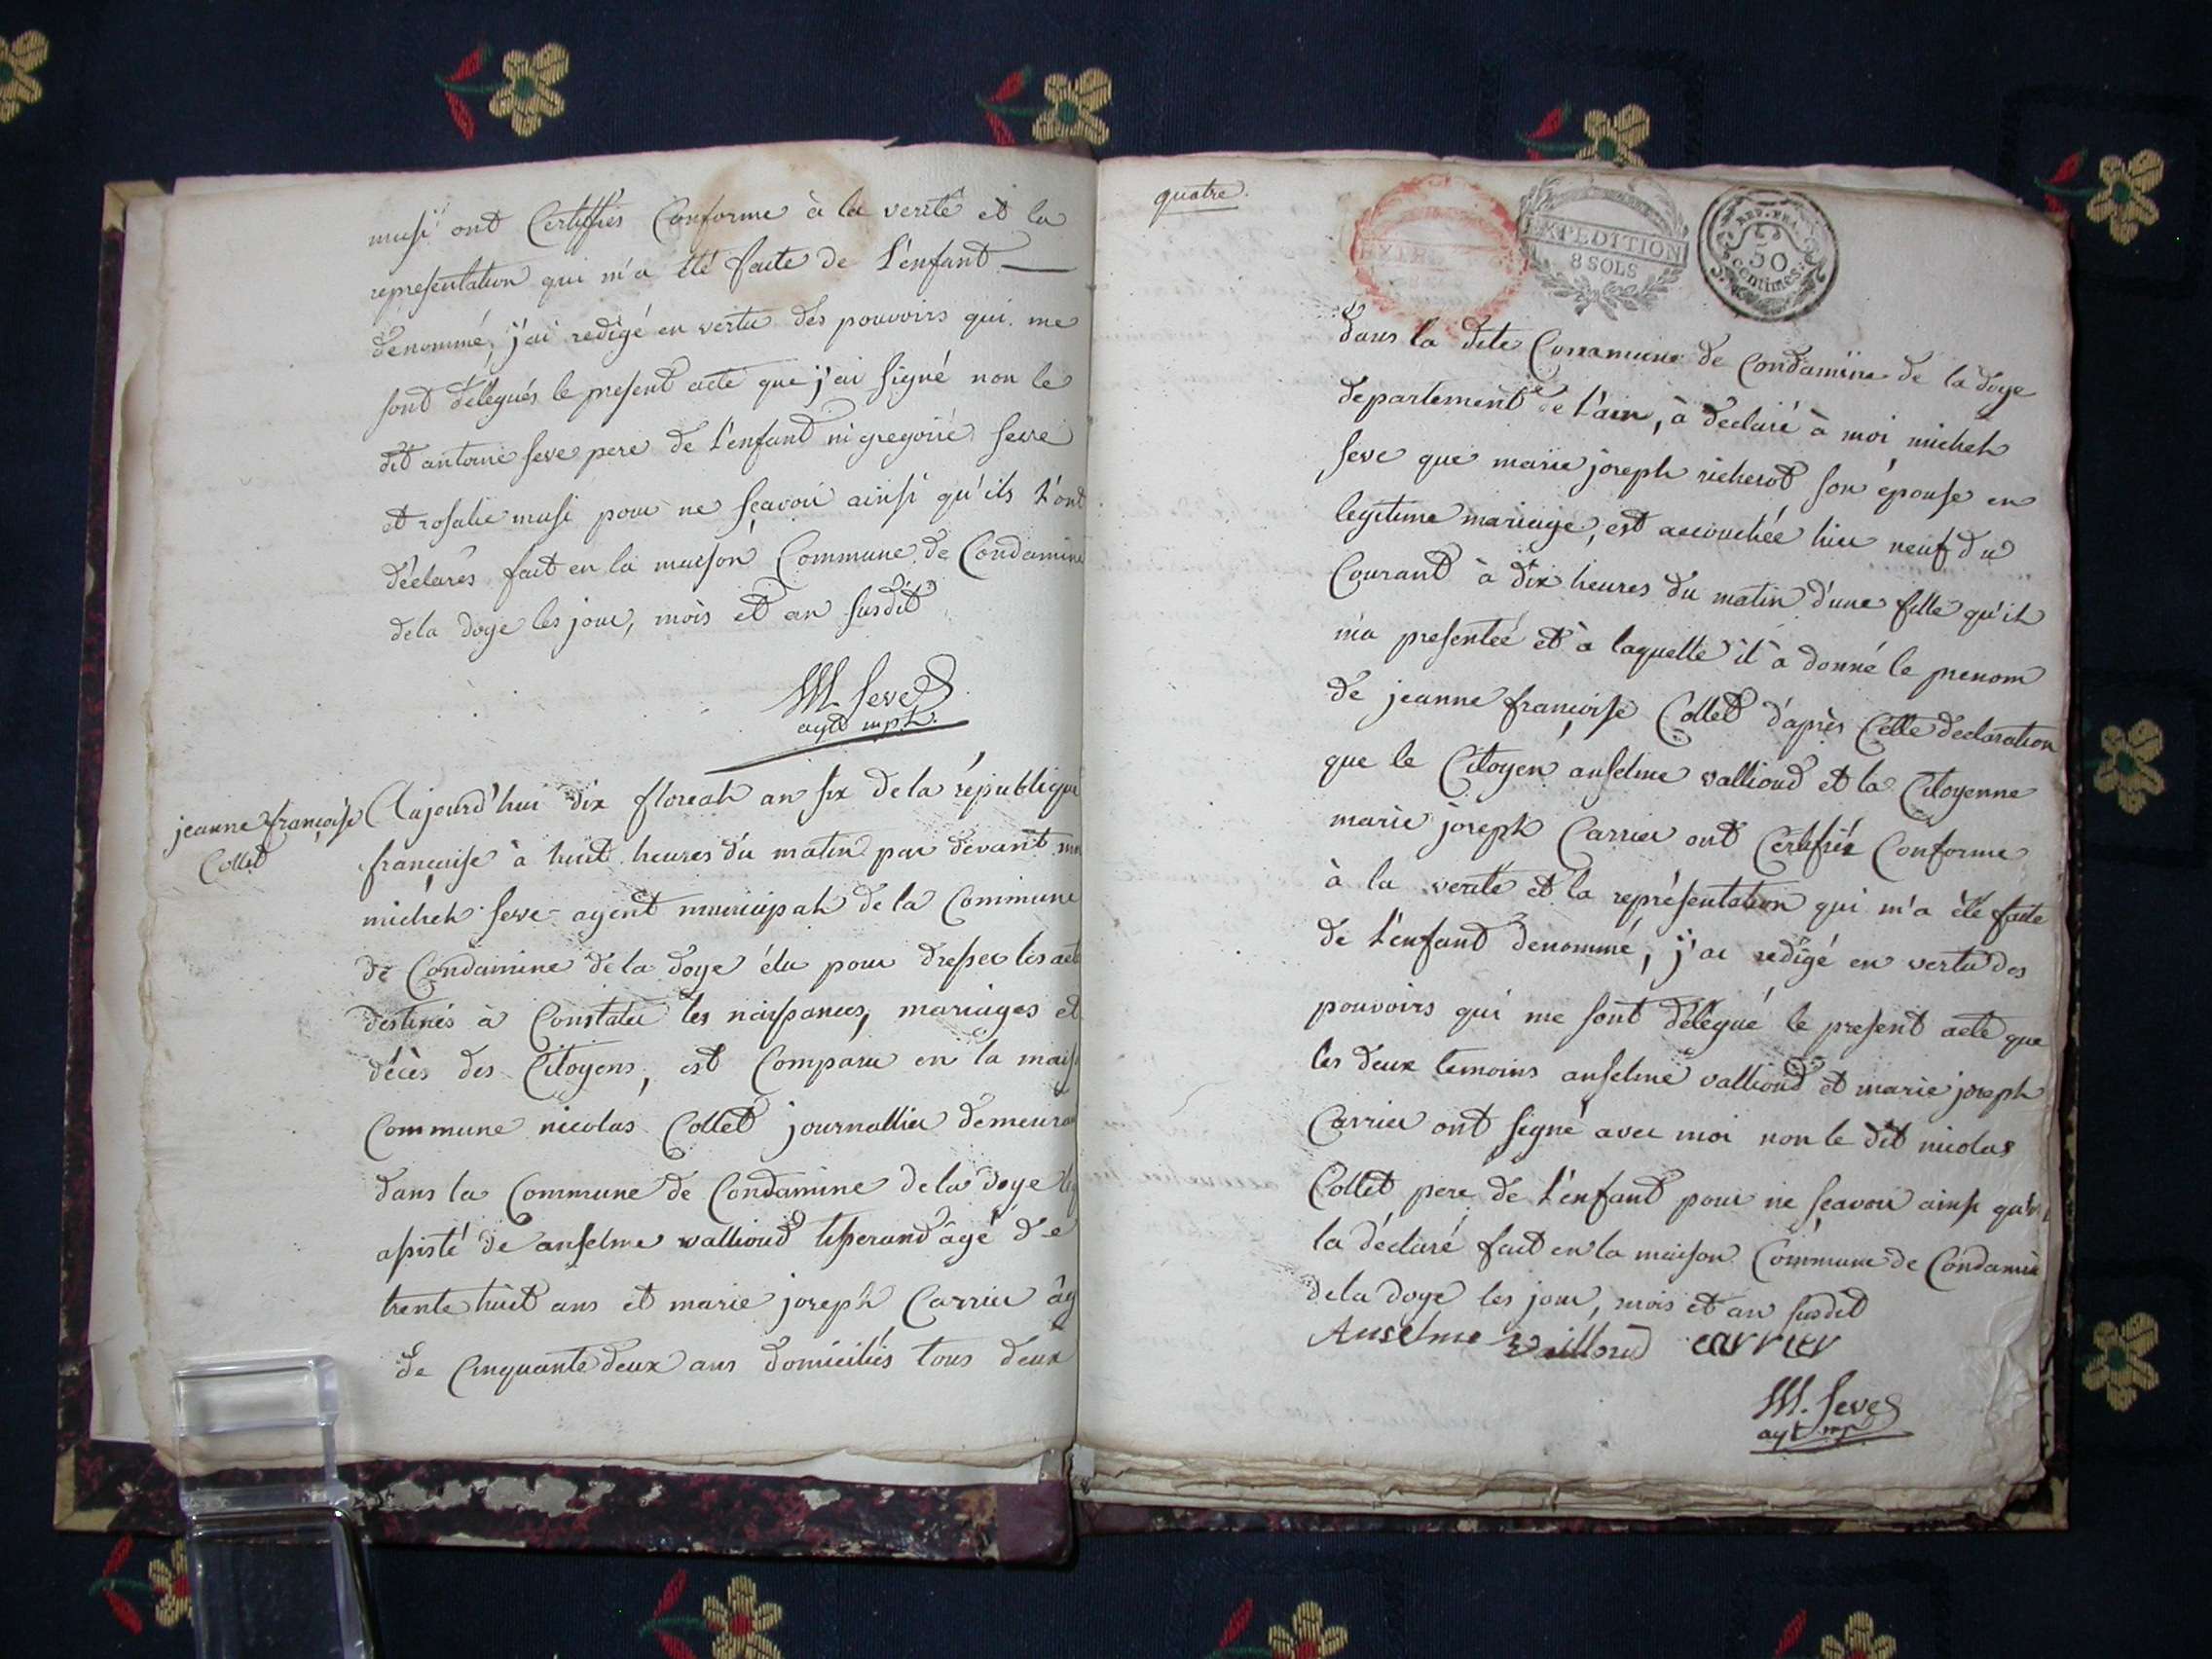 musi ont Certiffiés Conforme à la verité et la
representation qui m'a été faite de l'enfant
denommé, j'ai redigé en vertu des pouvoirs qui me
sont délegués le present acte que j'ai signé non le
dit antoine seve pere de l'enfant ni gregoire seve
et rosalie musi pour ne sçavoir ainsi qu'ils l'ont
déclarés fait en la maison Commune de Condamine
dela doye les jour, mois et an susdit
M. Seve
agt mpl.
jeanne françoise
Collet
Aujourd'hui dix floreal an six de la république
françoise à huit heures du matin par devant moi
michel seve agent municipal de la Commune
de Condamine de la doye élu pour dresser les acte
destinés à Constater les naissances, mariages et
décès des Citoyens, est Comparu en la mais
Commune nicolas Collet journallier demeuran
dans la Commune de Condamine de la doye
assisté de anselme vallioud tisserand âgé de
trente huit ans et marie joseph Carrier âg
de Cinquante deux ans domiciliés tous deux
quatre.
EXPEDITION
8 SOLS
REP. FRA.
50
centimes
dans la dite Commune de Condamine de la doye
departement de l'ain, à declaré à moi michel
seve que marie joseph richerot son épouse en
legitime mariage, est accouchée hier neuf du
Courant à dix heures du matin d'une fille qu'il
m'a presentée et à laquelle il à donné le prenom
de jeanne françoise Collet d'après Cette declaration
que le Citoyen anselme vallioud et la Citoyenne
marie joseph Carrier ont Certifiés Conforme
à la verité et la représentation qui m'a été faite
de l'enfant denommé, j'ai redigé en vertu des
pouvoirs qui me sont délegué le present acte que
les deux temoins anselme vallioud et marie joseph
Carrier ont signé avec moi non le dit nicolas
Collet pere de l'enfant pour ne sçavoir ainsi qu'il
la déclaré fait en la maison Commune de Condamin
dela doye les jour, mois et an susdit
Anselme vailloud carrier
M. Seve
agt mpl